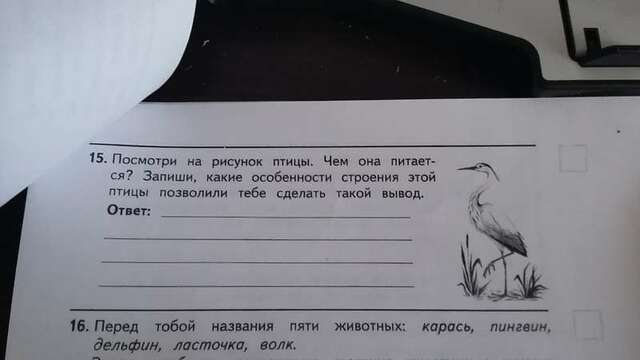 15. Посмотри на рисунок птицы. Чем она питает-
ся? Запиши, какие особенности строения этой
птицы позволили тебе сделать такой вывод.
Ответ:
16. Перед тобой названия пяти животных: карась, пингвин,
дельфин, ласточка, волк.